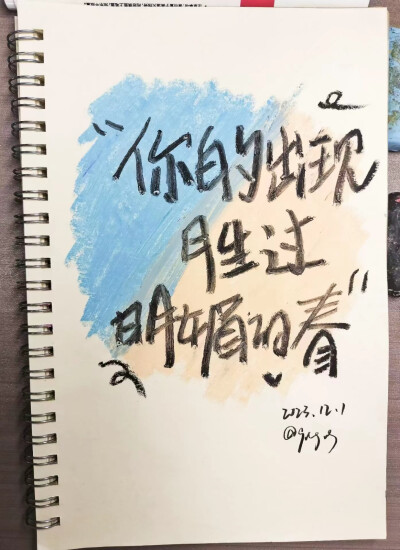 “你的出现
胜过
明媚的春”
2023.12.1